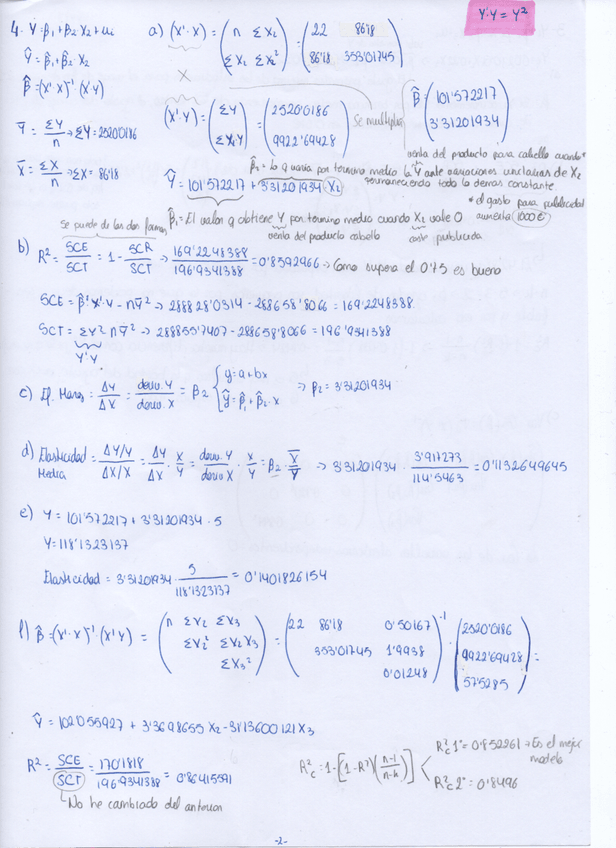 Y'Y = Y²
4. Y = β₁ + β₂ X₂ + ui
a) (X'·X) = ( n ΣX₂ ; ΣX₂ ΣX₂² ) = ( 22 86'18 ; 86'18 353'01745 )
Ŷ = β̂₁ + β̂₂ · X₂
β̂ = (X'·X)⁻¹ · (X'Y)
(X'·Y) = ( ΣY ; ΣX₂Y ) = ( 2520'0186 ; 9922'69428 )
Se multiplica
β̂ = ( 101'572217 ; 3'31201934 )
Ȳ = ΣY/n → ΣY = 2520'0186
X̄ = ΣX/n → ΣX = 86'18
β̂₂ = Lo q varía por termino medio la Y ante variaciones unitarias de X₂ permaneciendo todo lo demas constante
venta del producto para cabello cuando*
* el gasto para publicidad aumenta 1000€
Ŷ = 101'572217 + 3'31201934 X₂
β̂₁ = El valor q obtiene Y por termino medio cuando X₂ vale 0
venta del producto cabello
Se puede de las dos formas
b) R² = SCE/SCT = 1 - SCR/SCT → 169'2248388/196'9341388 = 0'8592966 → Como supera el 0'75 es bueno
SCE = β̂'X'Y - nȲ² → 288828'0314 - 288658'8066 = 169'2248388.
SCT = ΣY² - nȲ² → 288855'7407 - 288658'8066 = 196'9341388
Y'Y
c) Ef. Marg = ΔY/ΔX = deriv. Y/deriv. X = β₂ { y = a + bx ; ŷ = β̂₁ + β̂₂ · x → β₂ = 3'31201934
d) Elasticidad Media = ΔY/Y / ΔX/X = ΔY/ΔX · X/Y = deriv. Y/deriv X · X/Y = β₂ · X̄/Ȳ → 3'31201934 · 3'917273/114'5463 = 0'1132649645
e) Y = 101'572217 + 3'31201934 · 5
Y = 118'1323137
Elasticidad = 3'31201934 · 5/118'1323137 = 0'1401826154
f) β̂ = (X'·X)⁻¹ · (X'Y) = ( n ΣX₂ ΣX₃ ; ΣX₂² ΣX₂X₃ ; ΣX₃² ) = ( 22 86'18 0'50167 ; 353'01745 1'9938 ; 0'01248 )⁻¹ · ( 2520'0186 ; 9922'69428 ; 57'5285 ) =
Ŷ = 102'055927 + 3'3698655 X₂ - 31'13600121 X₃
R² = SCE/SCT = 170'1818/196'9341388 = 0'86415591
No he cambiado del anterior
R²c = 1 - [(1 - R²)(n-1/n-k)]
R²c 1º = 0'852261 → Es el mejor modelo
R²c 2º = 0'8496
-2-